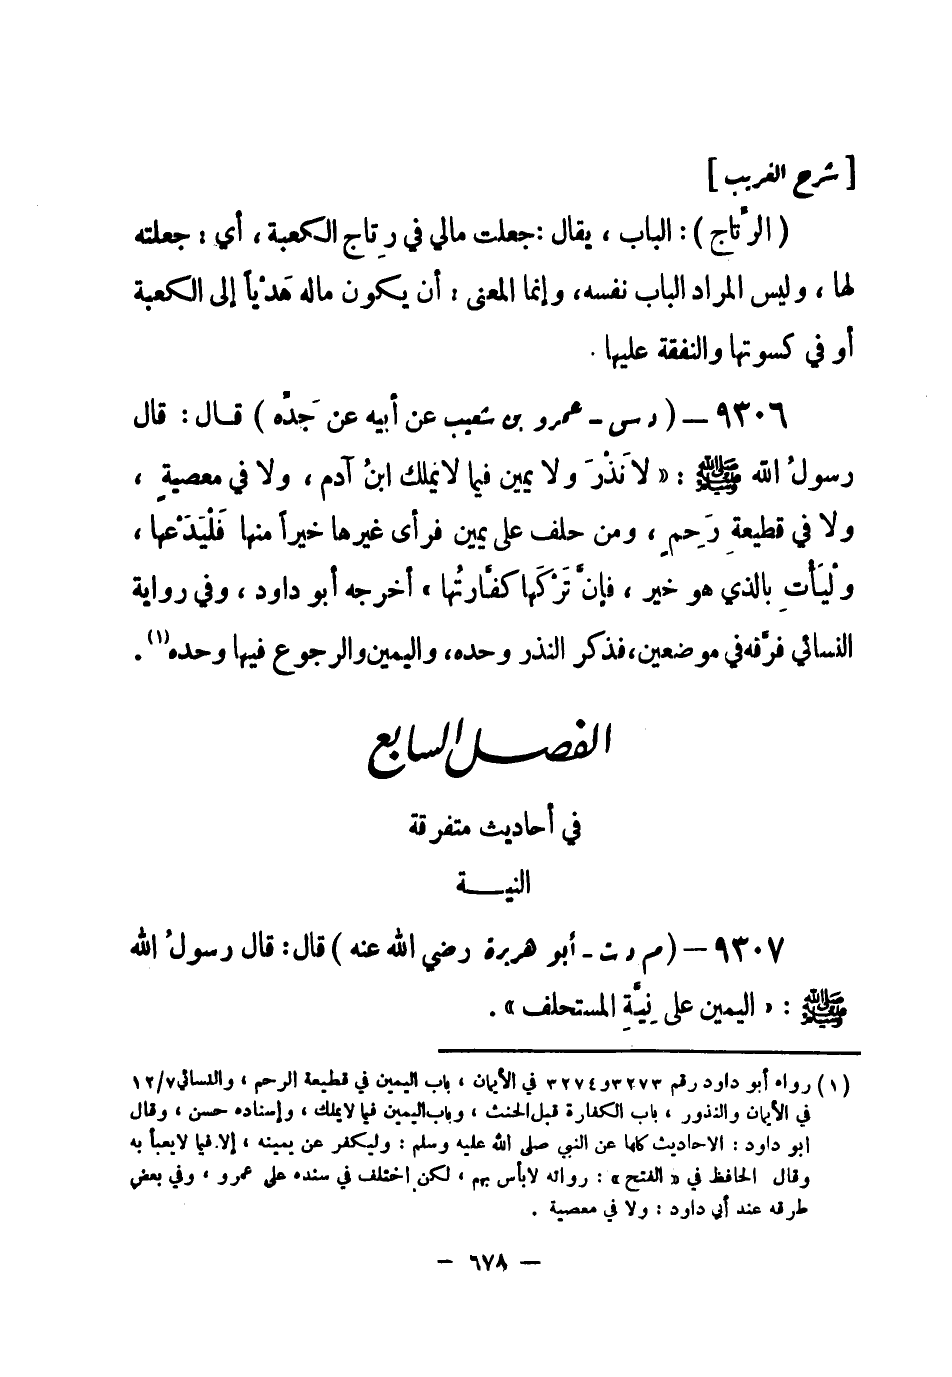 [ شرح الغريب ]
( الرِّتاج ) : الباب ، يقال : جعلت مالي في رِتاج الكعبة ، أي : جعلته
لها ، وليس المراد الباب نفسه ، وإنما المعنى : أن يكون ماله هَدْياً إلى الكعبة
أو في كسوتها والنفقة عليها .
٩٣٠٦ – ( د س - عمرو بن شعيب عن أبيه عن جَدِّه ) قـال : قال
رسولُ الله ﷺ : « لا نَذْرَ ولا يمين فيما لا يملك ابنُ آدم ، ولا في معصيةٍ ،
ولا في قطيعةِ رَحِمٍ ، ومن حلف على يمين فرأى غيرها خيراً منها فَلْيَدَعْها ،
ولْيَأْتِ بالذي هو خير ، فإنَّ تَرْكَها كفَّارتُها » أخرجه أبو داود ، وفي رواية
النسائي فرَّقه في موضعين ، فذكر النذر وحده ، واليمين والرجوع فيها وحده(١) .
الفصـل السابع
في أحاديث متفرقة
النيــة
٩٣٠٧ – ( م د ت - أبو هريرة رضي الله عنه ) قال : قال رسولُ الله
ﷺ : « اليمين على نِيَّةِ المستحلف » .
(١) رواه أبو داود رقم ٣٢٧٣ و ٣٢٧٤ في الأيمان ، باب اليمين في قطيعة الرحم ، والنسائي ١٢/٧
في الأيمان والنذور ، باب الكفارة قبل الحنث ، وباب اليمين فيما لا يملك ، وإسناده حسن ، وقال
ابو داود : الاحاديث كلها عن النبي صلى الله عليه وسلم : وليكفر عن يمينه ، إلا فيما لا يعبأ به
وقال الحافظ في « الفتح » : رواته لا بأس بهم ، لكن اختلف في سنده على عمرو ، وفي بعض
طرقه عند أبي داود : ولا في معصية .
– ٦٧٨ –